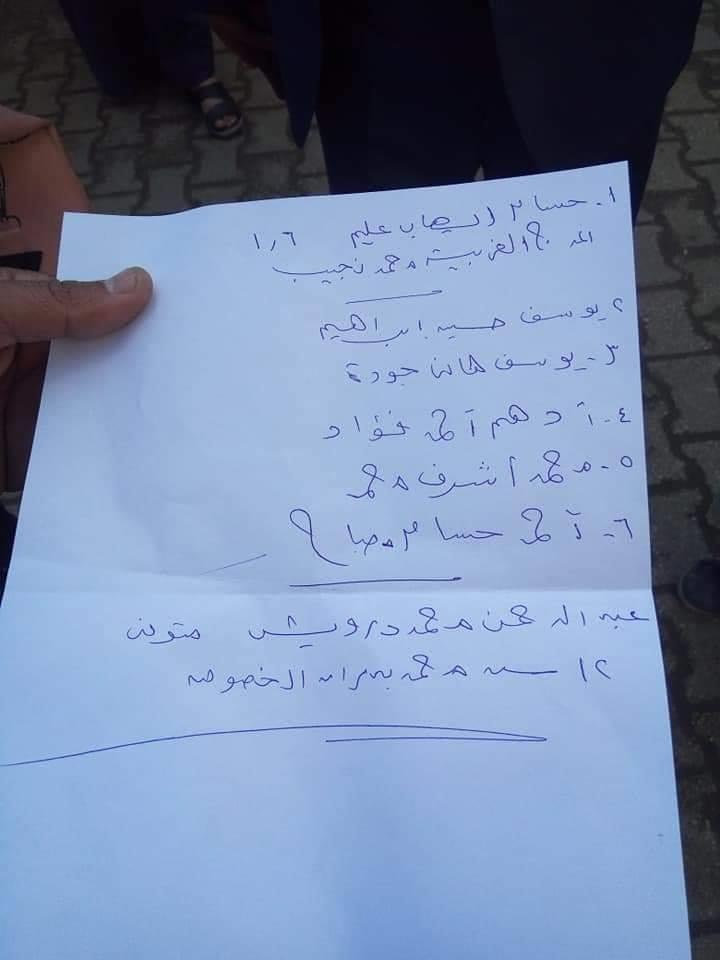 ١- حسام إيهاب عليم ١٫٦
المرج الغربية محمد نجيب
٢ يوسف حسين ابراهيم
٣- يوسف هاني جودة
٤- أدهم أحمد فؤاد
٥- محمد أشرف محمد
٦- أحمد حسام مصباح
عبد الرحمن محمد درويش متوفى
١٢ سنه محمد بدران الخصوص